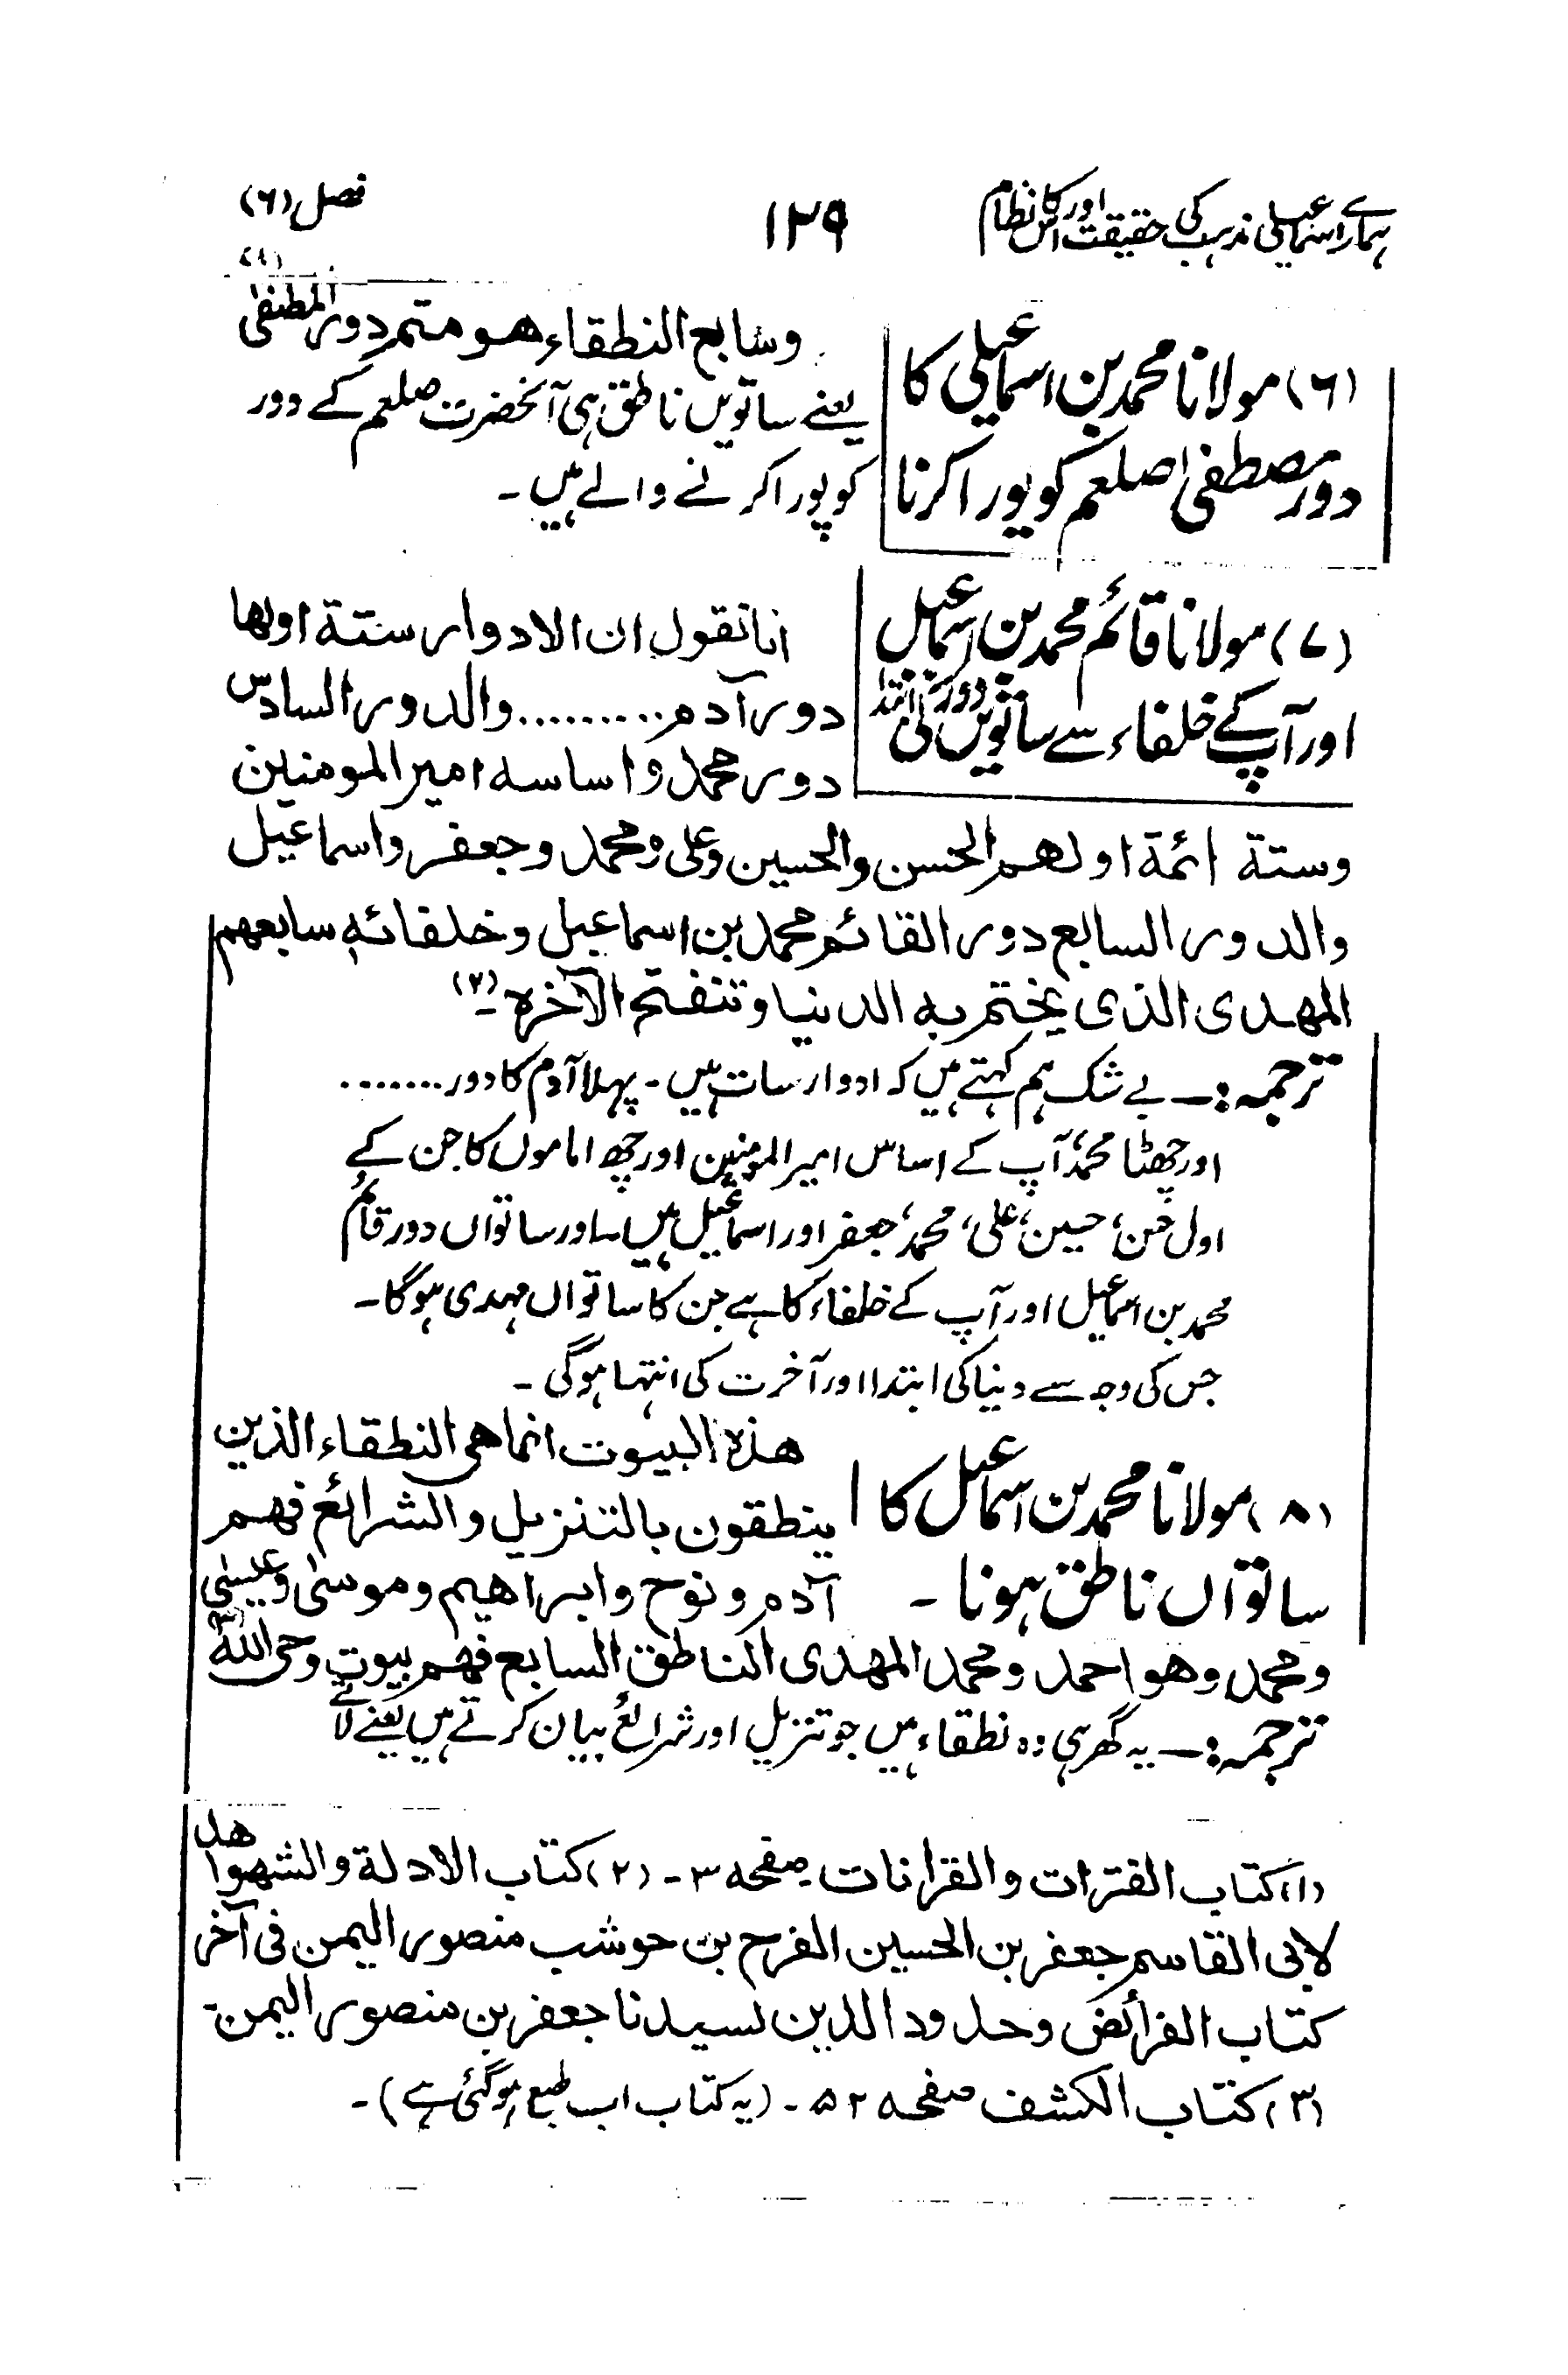 ہمارے اسماعیلی مذہب کی حقیقت اور اس کا نظام
۱۲۹
فصل (۶)
(۶) مولانا محمد بن اسماعیلی کا
دور مصطفیٰ صلعم کو پورا کرنا
(۱)
وسابع النطقاء هو متمر دور المصطفیٰ
یعنے ساتویں ناطق ہی آنحضرت صلعم کے دور
کو پورا کرنے والے ہیں ۔
(۷) مولانا قائم محمد بن اسماعیل
اور آپ کے خلفاء سے ساتویں دور کی ابتدا
انا نقول ان الادوار ستة اولها
دور آدم .......... والدور السادس
دور محمد واساسه امیر المومنین
وستة ائمة اولهم الحسن والحسین وعلی ومحمد وجعفر واسماعیل
والدور السابع دور القائم محمد بن اسماعیل وخلفائه سابعهم
المهدی الذی یختم به الدنیا وتنفتح الآخرة ۔ (۲)
ترجمہ :۔ بے شک ہم کہتے ہیں کہ ادوار سات ہیں ۔ پہلا آدم کا دور .......
اور چھٹا محمدؐ آپ کے اساس امیر المومنین اور چھ اماموں کا جن کے
اول حسن، حسین، علی، محمد، جعفر اور اسماعیل ہیں ۔ اور ساتواں دور قائم
محمد بن اسماعیل اور آپ کے خلفاء کا ہے جن کا ساتواں مہدی ہوگا ۔
جس کی وجہ سے دنیا کی ابتدا اور آخرت کی انتہا ہوگی ۔
(۸) مولانا محمد بن اسماعیل کا
ساتواں ناطق ہونا ۔
هذه البیوت انما هی النطقاء الذین
ینطقون بالتنزیل والشرائع فهم
آدم ونوح وابراهیم وموسیٰ وعیسیٰ
ومحمد وهو احمد ومحمد المهدی الناطق السابع فهم بیوت وحی الله (۳)
ترجمہ :۔ یہ گھر ہی وہ نطقاء ہیں جو تنزیل اور شرائع بیان کرتے ہیں یعنے لاتے
(۱) کتاب الفترات والقرانات صفحہ ۳ ۔ (۲) کتاب الادلة والشواهد
لابی القاسم جعفر بن الحسین الفرح بن حوشب منصور الیمن فی آخر
کتاب الفرائض وحدود الدین لسیدنا جعفر بن منصور الیمن ۔
(۳) کتاب الکشف صفحہ ۵۲ ۔ (یہ کتاب اب طبع ہوگئی ہے) ۔